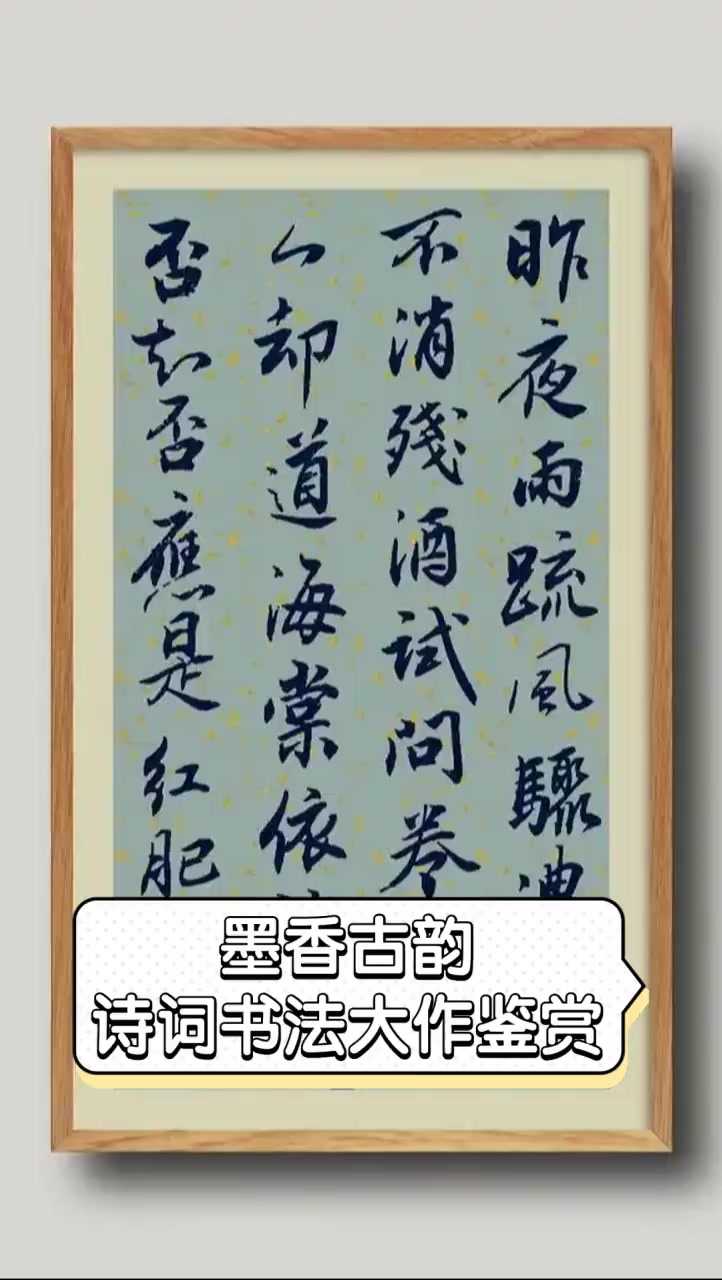 昨夜雨疏風驟
不消殘酒試問卷
人却道海棠依
否知否應是紅肥
墨香古韵
诗词书法大作鉴赏